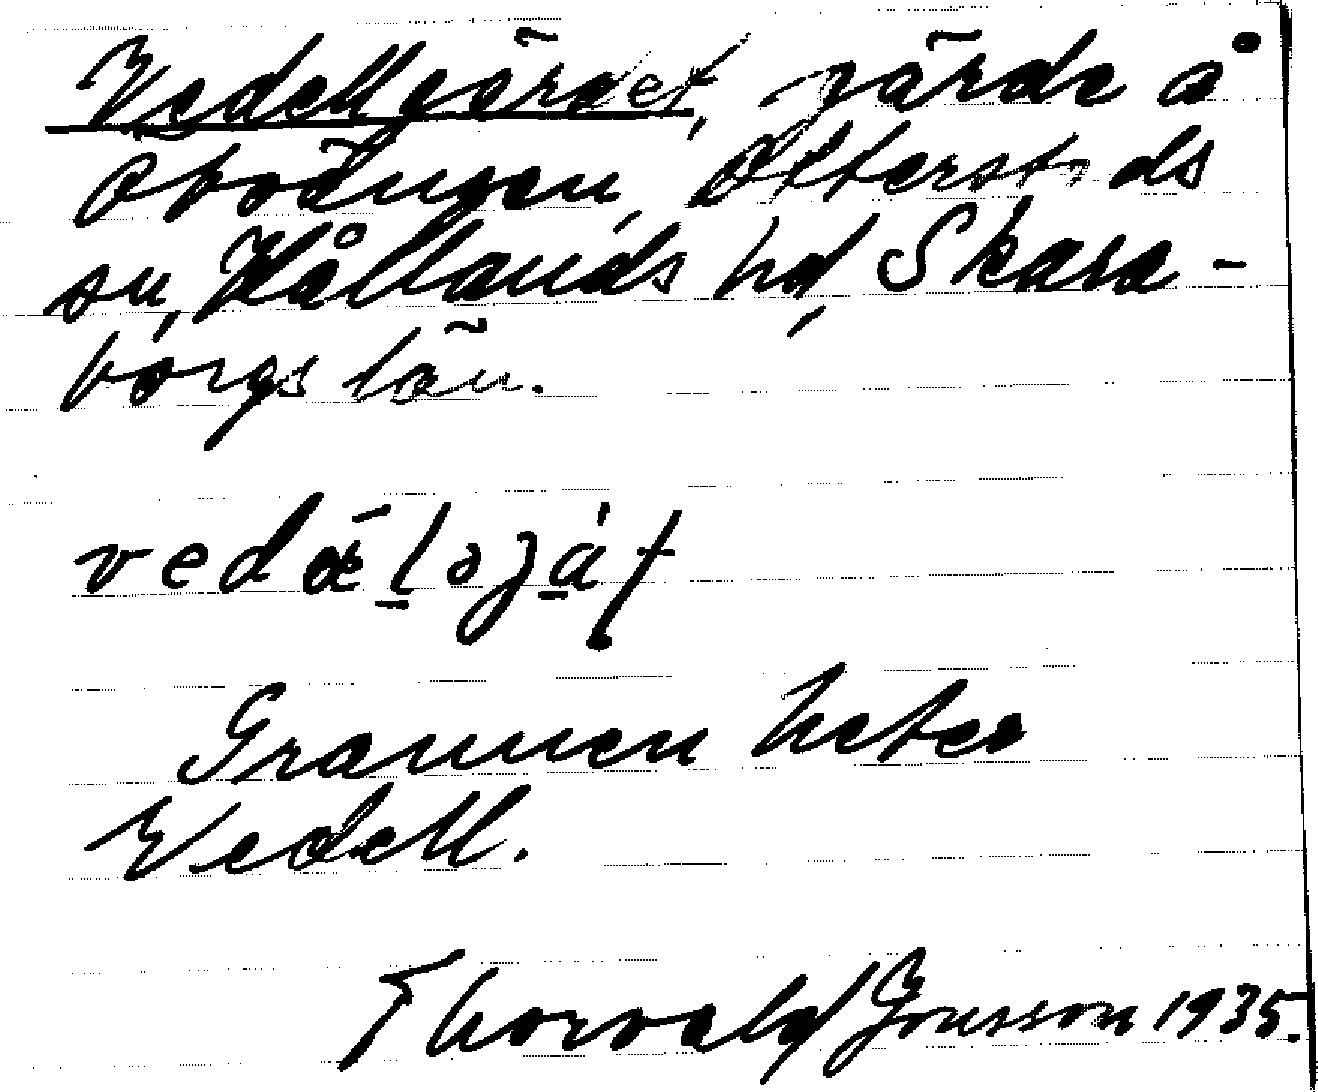 Vedellgärdet, gärde å
Åbodungen, Otterstads
sn, Kållands hd, Skara-
borgs län.
Grannen heter
Wedell.
Thorvald Jonsson 1935.